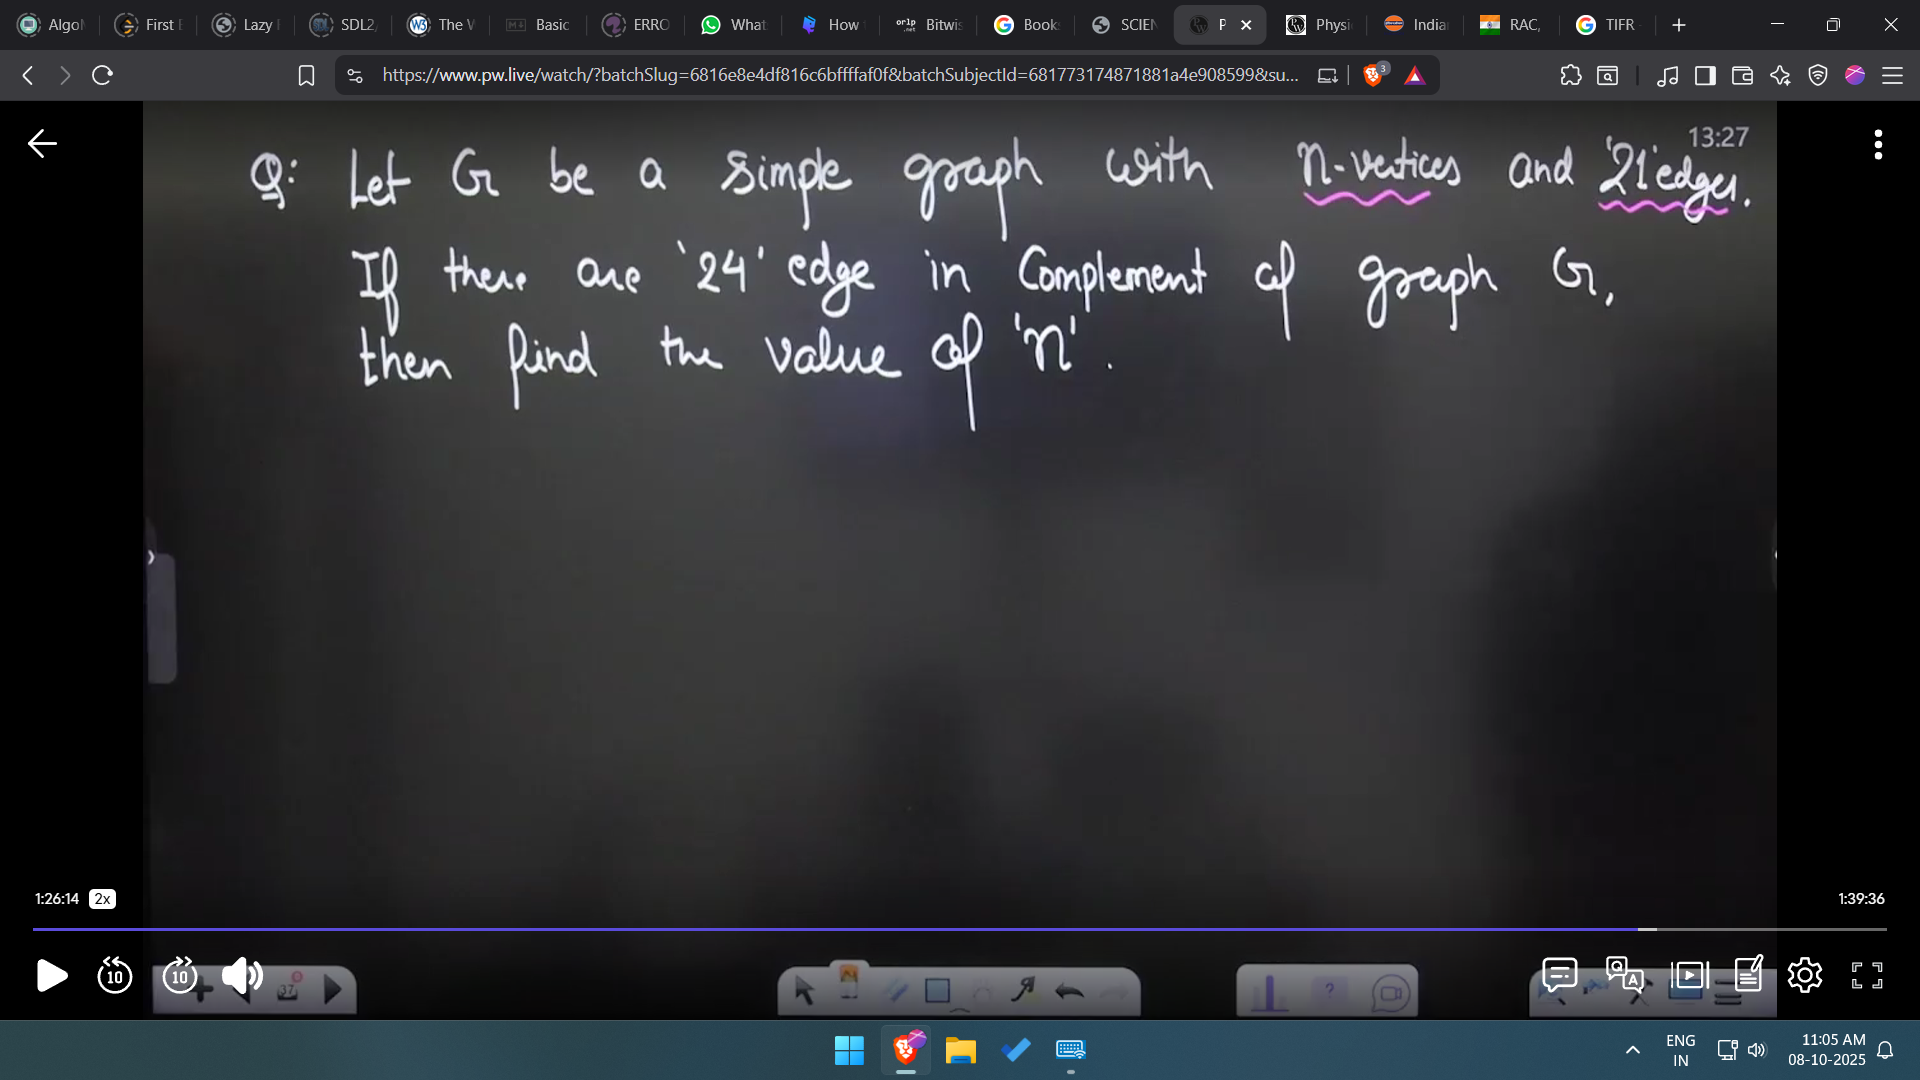 Algo
First E
Lazy
SDL2
The W
Basic
ERRO
What
How
orlp .net Bitwis
Book
SCIEN
P
Physi
India
RAC,
TIFR
https://www.pw.live/watch/?batchSlug=6816e8e4df816c6bffffaf0f&batchSubjectId=681773174871881a4e908599&su...
3
13:27
Q: Let G be a simple graph with n-vertices and '21' edges.
If there are '24' edge in Complement of graph G,
then find the value of 'n'.
1:26:14 2x
1:39:36
10 10
37
ENG
IN
11:05 AM
08-10-2025